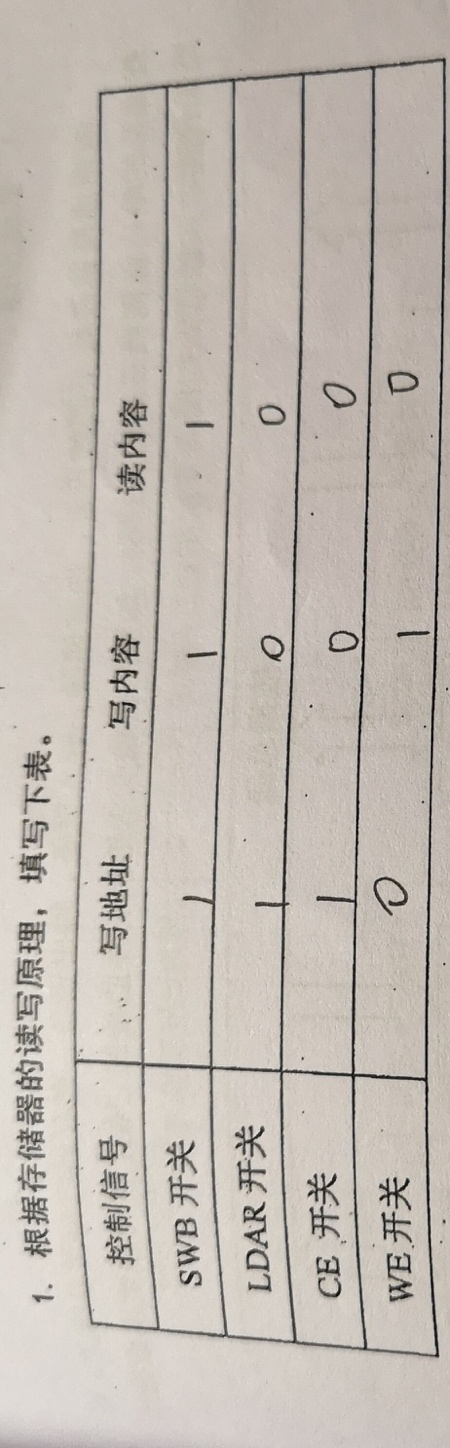 1. 根据存储器的读写原理，填写下表。
控制信号 写地址 写内容 读内容
SWB 开关 1 1 1
LDAR 开关 1 0 0
CE 开关 1 0 0
WE 开关 0 1 0